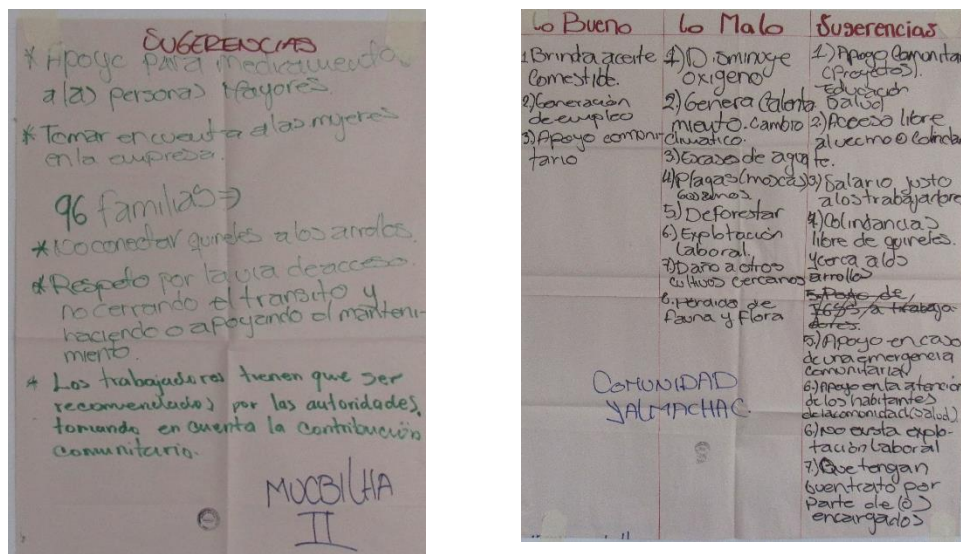 SUGERENCIAS
* Apoyo para medicamento
a las personas Mayores.
* Tomar en cuenta a las mujeres
en la empresa.
96 familias ⇒
* No conectar quineles a los arrollos.
* Respeto por la via de acceso.
no cerrando el transito y
haciendo o apoyando el manteni-
miento.
* Los trabajadores tienen que ser
recomendados por las autoridades,
tomando en cuenta la contribución
comunitario.
MUCBILHA
II
Lo Bueno
1 Brinda aceite
Comestible.
2) Generación
de empleo
3) Apoyo comuni-
tario
Lo Malo
1) Disminuye
oxigeno
2) Genera Calenta
miento. Cambio
climatico.
3) Escases de agua
4) Plagas (moscas)
gusanos
5) Deforestar
6) Explotación
Laboral.
7) Daño a otros
cultivos cercanos
8. Perdida de
fauna y flora
Sugerencias
1) Apoyo Comunitar
(Proyectos).
Educación
Salud
2) Acceso libre
al vecino o Colindan
te.
3) Salario justo
a los trabajadore
4) Colindancias
libre de quineles.
y cerca a los
arrollos
5. Pago de
a trabaja
dores.
5) Apoyo en caso
de una emergencia
comunitaria
6) Apoyo en la atención
de los habitantes
de la comunidad (salud)
6) No exista explo-
tación laboral
7) Que tengan
buen trato por
parte de los
encargados
COMUNIDAD
YALMACHAC